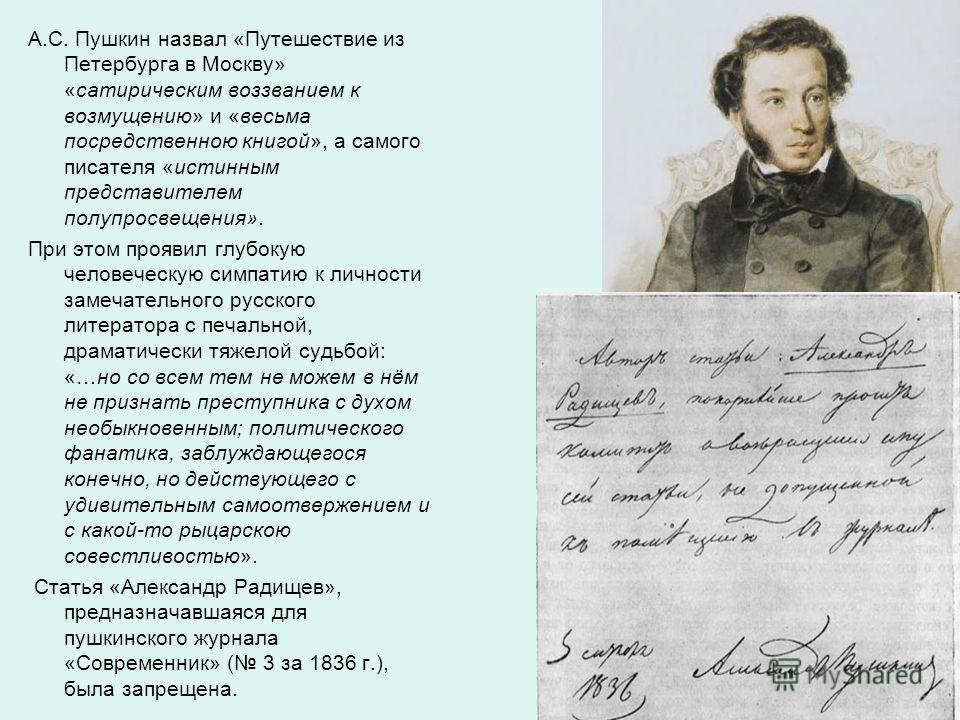 А.С. Пушкин назвал «Путешествие из
Петербурга в Москву»
«сатирическим воззванием к
возмущению» и «весьма
посредственною книгой», а самого
писателя «истинным
представителем
полупросвещения».
При этом проявил глубокую
человеческую симпатию к личности
замечательного русского
литератора с печальной,
драматически тяжелой судьбой:
«…но со всем тем не можем в нём
не признать преступника с духом
необыкновенным; политического
фанатика, заблуждающегося
конечно, но действующего с
удивительным самоотвержением и
с какой-то рыцарскою
совестливостью».
Статья «Александр Радищев»,
предназначавшаяся для
пушкинского журнала
«Современник» (№ 3 за 1836 г.),
была запрещена.
Авторъ статьи : Александръ
Радищевъ, покорнѣйше проситъ
о возвращении ему
сей статьи, не допущенной
въ журналѣ.
1836
Александръ Пушкинъ
MyShared